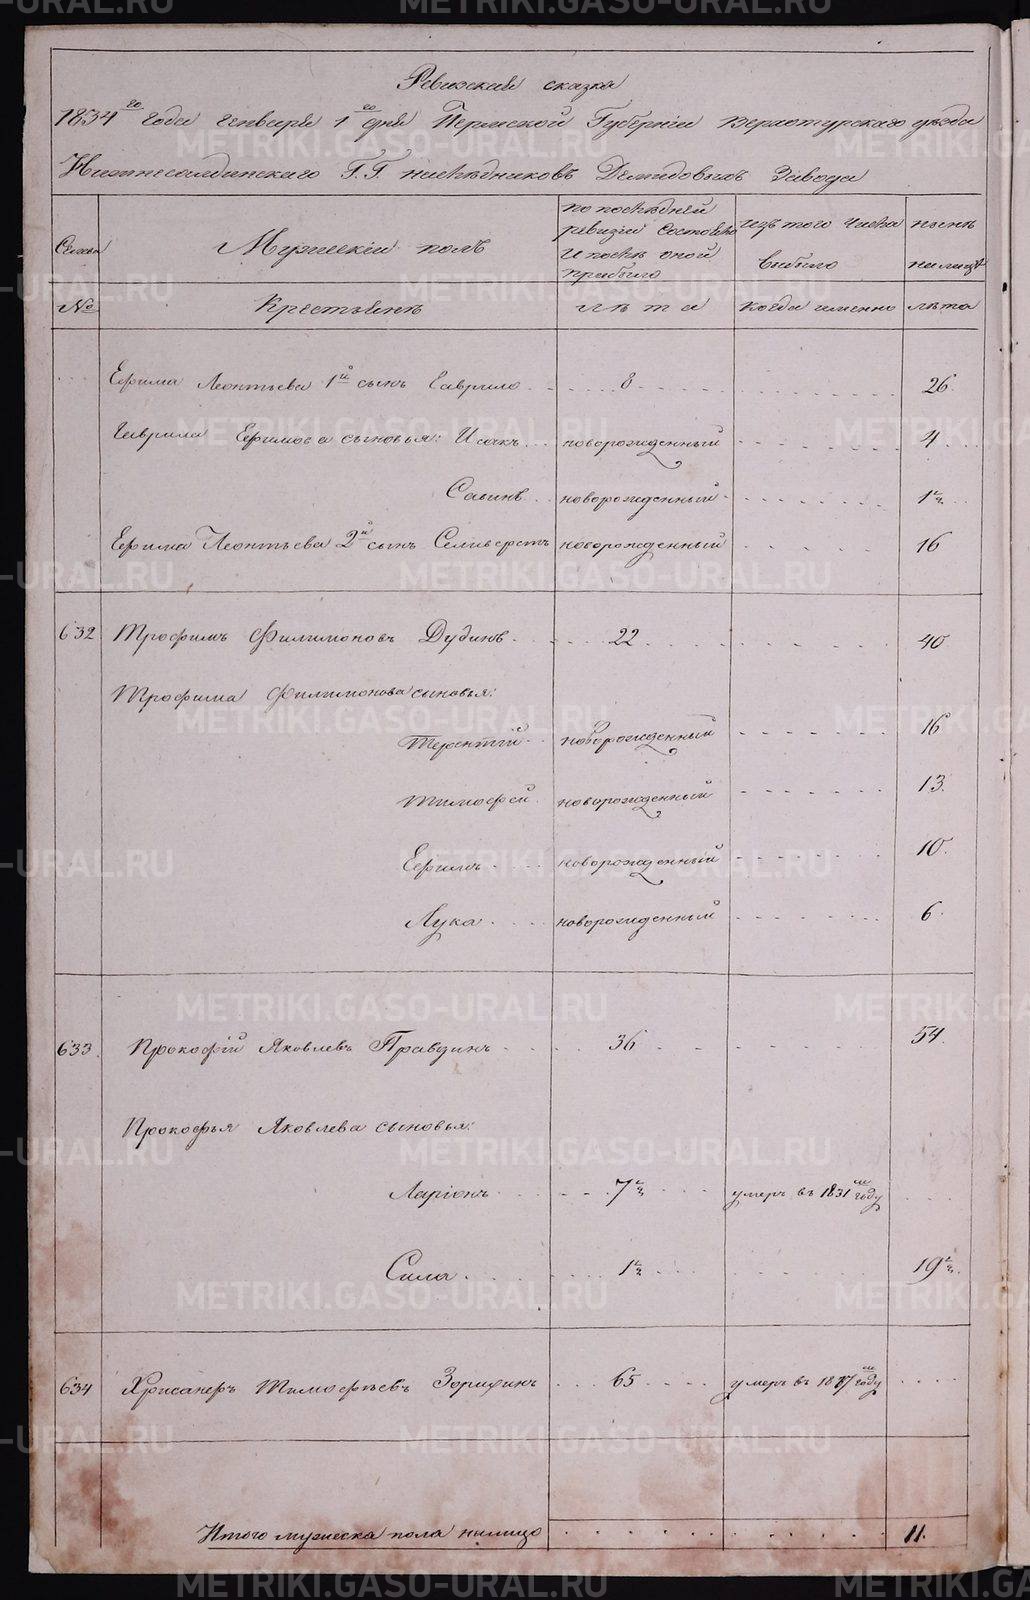 Ревизская сказка
1834го года генваря 1го дня Пермской Губернiи Верхотурскаго уѣзда
Нижнесалдинскаго Г.Г. наслѣдниковъ Демидовыхъ Завода
Семьи Мужескiй полъ по послѣдней ревизiи состояло и послѣ оной прибыло изъ того числа выбыло нынѣ на лицѣ
№ Крестьянъ лѣта когда именно лѣта
Ефима Леонтьева 1й сынъ Гаврило 8 26
Гаврила Ефимова сыновья: Исакъ новорожденный 4
Савинъ новорожденный 1½
Ефима Леонтьева 2й сынъ Селиверстъ новорожденный 16
632 Трофимъ Филимоновъ Дудинъ 22 40
Трофима Филимонова сыновья:
Терентiй новорожденный 16
Тимофей новорожденный 13
Ефимъ новорожденный 10
Лука новорожденный 6
633 Прокофiй Яковлевъ Правдинъ 36 54
Прокофья Яковлева сыновья:
Ларiонъ 7½ умеръ въ 1831м году
Сила 1½ 19½
634 Хрисанфъ Тимофѣевъ Зорихинъ 65 умеръ въ году
Итого мужеска пола налицо 11.
METRIKI.GASO-URAL.RU